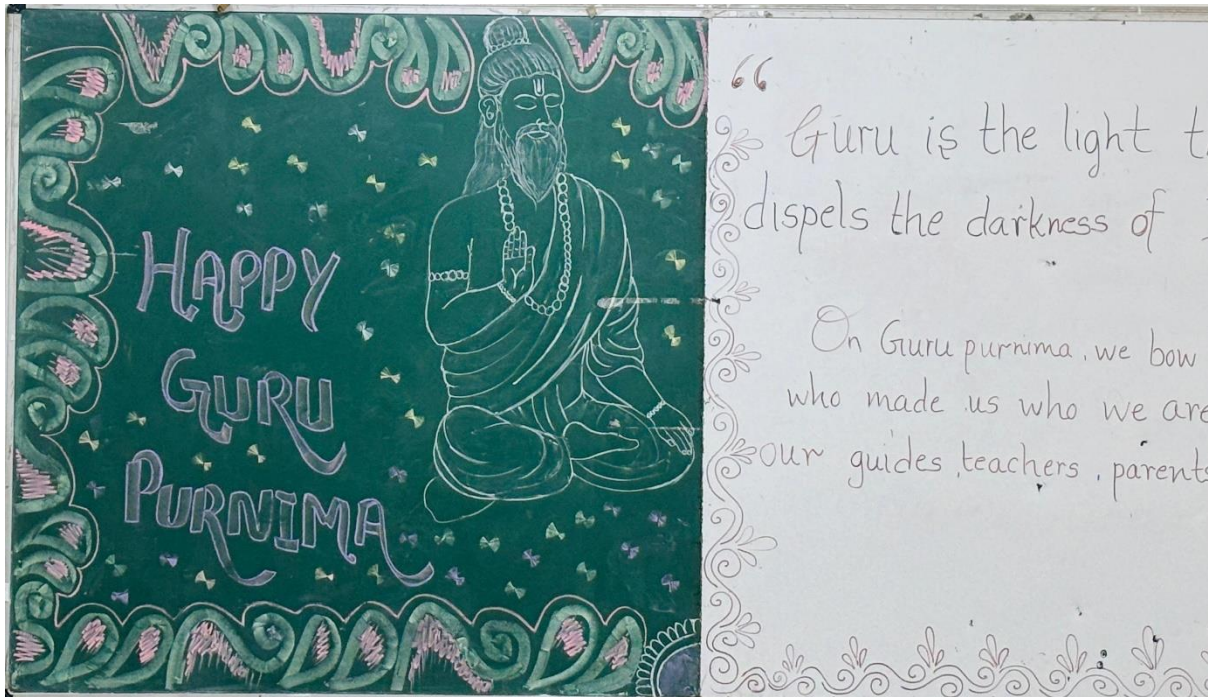 HAPPY
GURU
PURNIMA
“
Guru is the light
dispels the darkness of
On Guru purnima, we bow
who made us who we are
our guides, teachers, parents